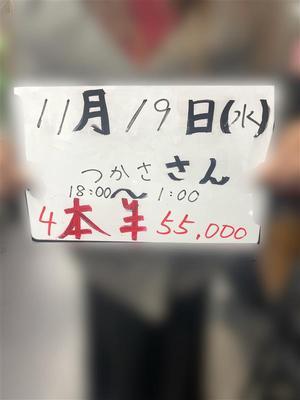 11月19日(水)
つかささん
18:00〜1:00
4本¥55,000